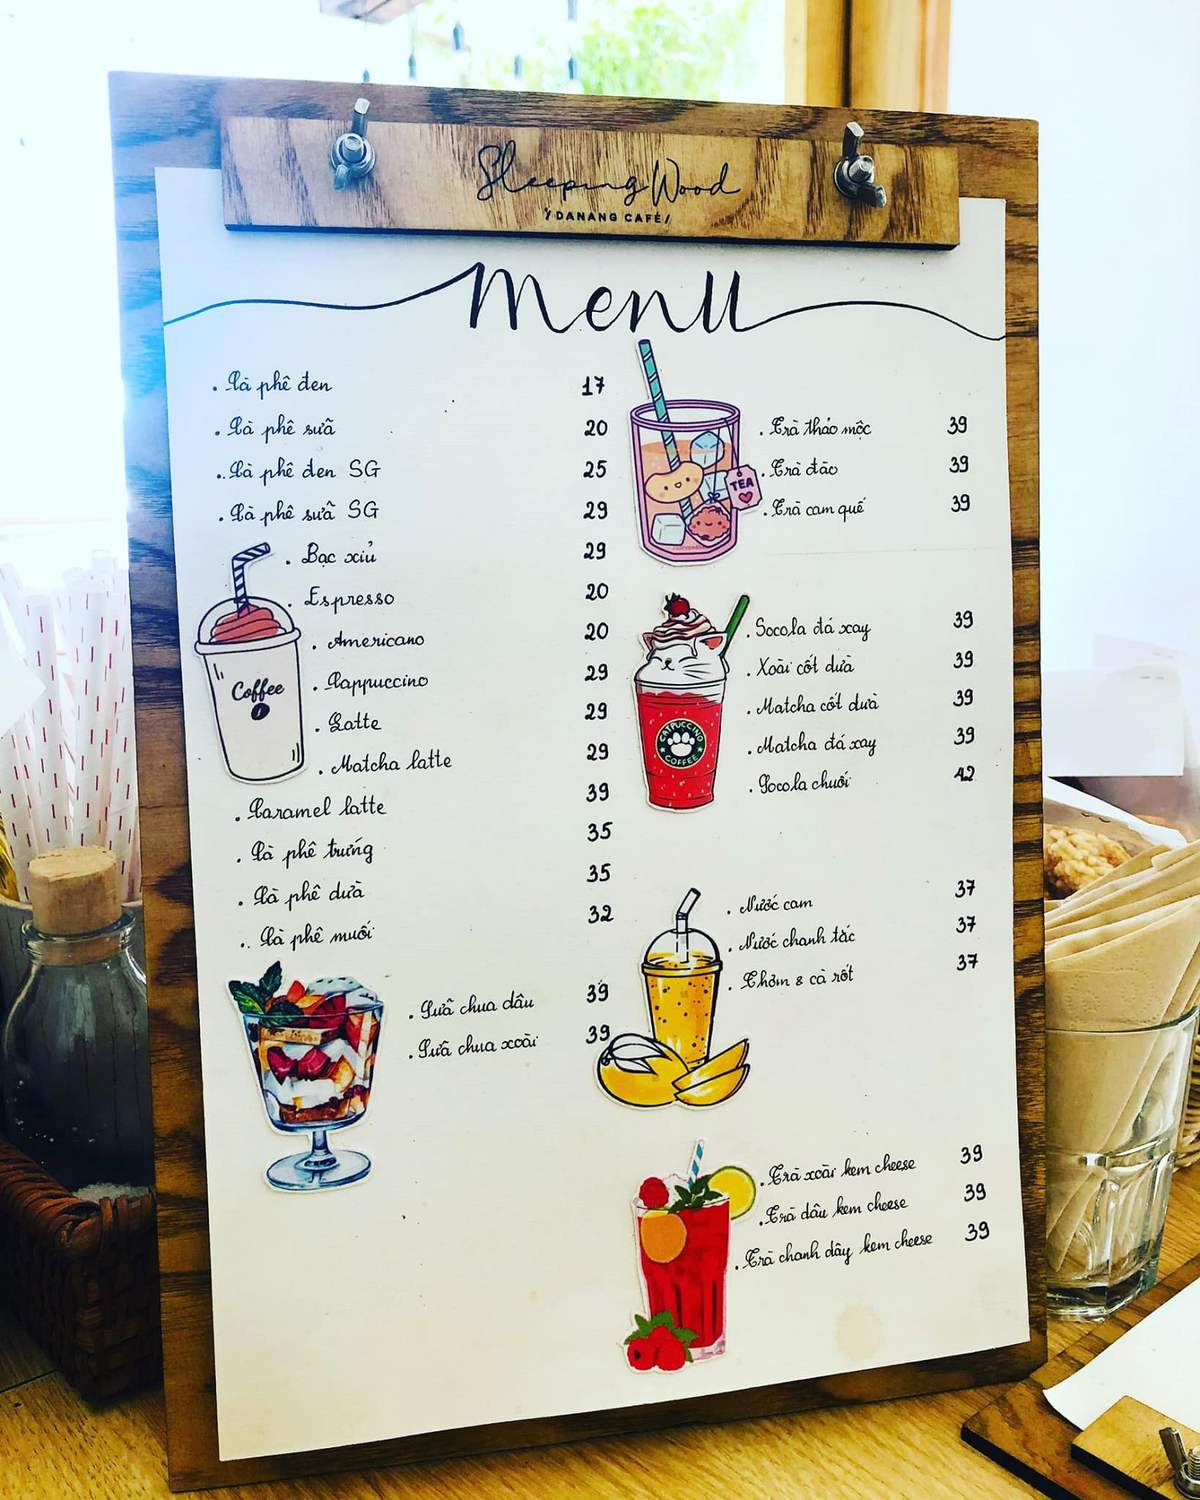 Sleeping Wood
/DANANG CAFÉ/
Menu
. Cà phê đen 17
. Cà phê sữa 20
. Cà phê đen SG 25
. Cà phê sữa SG 29
. Bạc xỉu 29
. Espresso 20
. Americano 20
. Cappuccino 29
. Latte 29
. Matcha latte 29
. Caramel latte 39
. Cà phê trứng 35
. Cà phê dừa 35
. Cà phê muối 32
Coffee
. Sữa chua dâu 39
. Sữa chua xoài 39
. Trà thảo mộc 39
. Trà đào 39
. Trà cam quế 39
TEA
. Socola đá xay 39
. Xoài cốt dừa 39
. Matcha cốt dừa 39
. Matcha đá xay 39
. Socola chuối 42
CATPUCCINO
COFFEE
. Nước cam 37
. Nước chanh tắc 37
. Thơm & cà rốt 37
. Trà xoài kem cheese 39
. Trà dâu kem cheese 39
. Trà chanh dây kem cheese 39